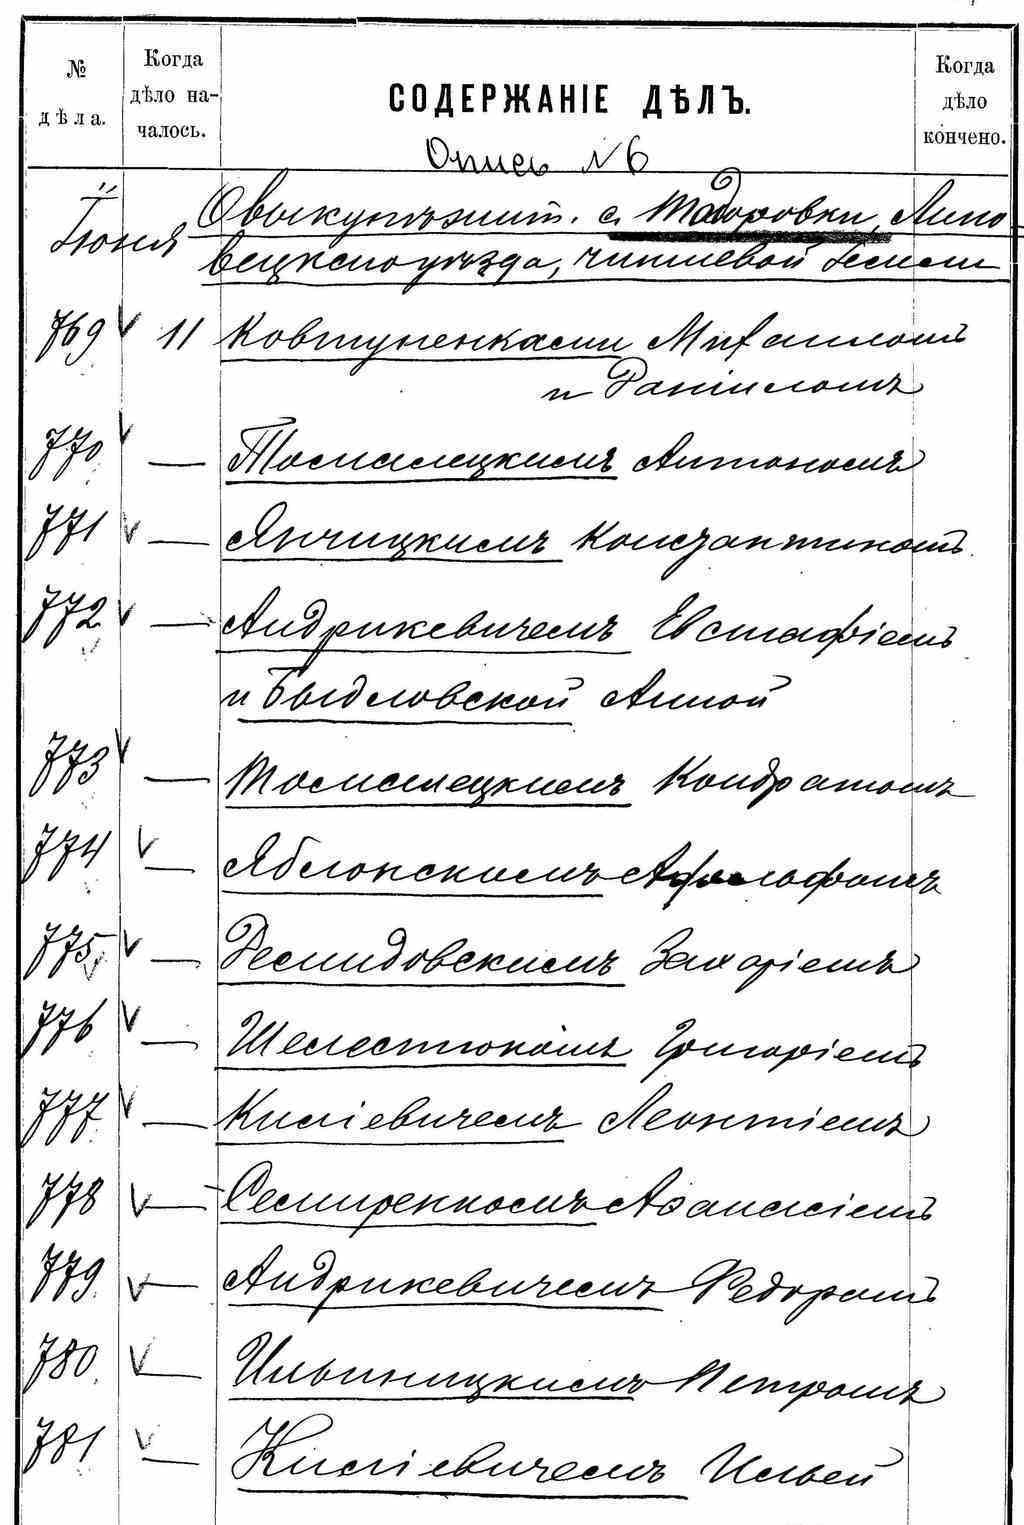 № дѣла.
Когда дѣло на-чалось.
СОДЕРЖАНІЕ ДѢЛЪ.
Когда дѣло кончено.
Опись №6
Іюня
О выкупѣ жит. с. Тодоровки, Липо
вецкаго уѣзда, чиншевой земли
769 11 Ковтуненками Михаиломъ
и Даніиломъ
770 — Томашецкимъ Антономъ
771 — Янчицкимъ Константиномъ
772 — Андрикевичемъ Евстафіемъ
и Быдловской Анной
773 — Томашецкимъ Кондратомъ
774 — Яблонскимъ
775 — Демидовскимъ Захаріемъ
776 — Шелестюкомъ Григоріемъ
777 — Кисіевичемъ Леонтіемъ
778 — Семиренкомъ Аѳанасіемъ
779 — Андрикевичемъ Федоромъ
780 — Ильницкимъ Петромъ
781 — Кисіевичемъ Ильей